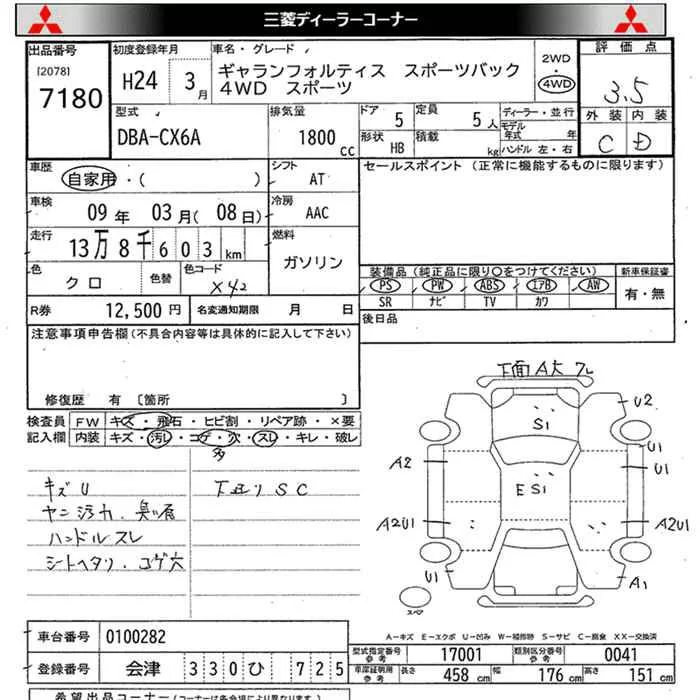 三菱ディーラーコーナー
出品番号
[2078]
7180
初度登録年月
H24 3月
車名・グレード
ギャランフォルティス スポーツバック
4WD スポーツ
2WD
4WD
評価点
3.5
外装 内装
C D
型式
DBA-CX6A
排気量
1800 cc
ドア 5
定員 5人
形状 HB
積載 kg
ディーラー・並行
モデル年式 年
ハンドル 左・右
車歴
自家用・( )
シフト
AT
車検
09年 03月(08日)
冷房
AAC
走行
13万8千603km
燃料
ガソリン
色
クロ
色替
色コード
X42
R券 12,500円
名変通知期限 月 日
セールスポイント (正常に機能するものに限ります)
装備品(純正品に限り○をつけてください)
PS PW ABS エアB AW
SR ナビ TV カワ
新車保証書
有・無
後日品
注意事項申告欄(不具合内容等は具体的に記入して下さい)
修復歴 有 [箇所 ]
検査員
記入欄
FW キズ・飛石・ヒビ割・リペア跡・×要
内装 キズ・汚し・コゲ・穴・スレ・キレ・破レ
多
キズU
ヤニ汚れ.臭い有
ハンドルスレ
シートヘタリ.コゲ穴
下廻りSC
下面A大
S1
E S1
U2
U1
U1
A2
A2U1
A2U1
U1
A1
スペア
A－キズ E－エクボ U－凹み W－補修跡 S－サビ C－腐食 XX－交換済
車台番号 0100282
登録番号 会津 330ひ 725
型式指定番号
参考
17001
類別区分番号
参考
0041
車庫証明用
参考
長さ 458cm
幅 176cm
高さ 151cm
希望出品コーナー